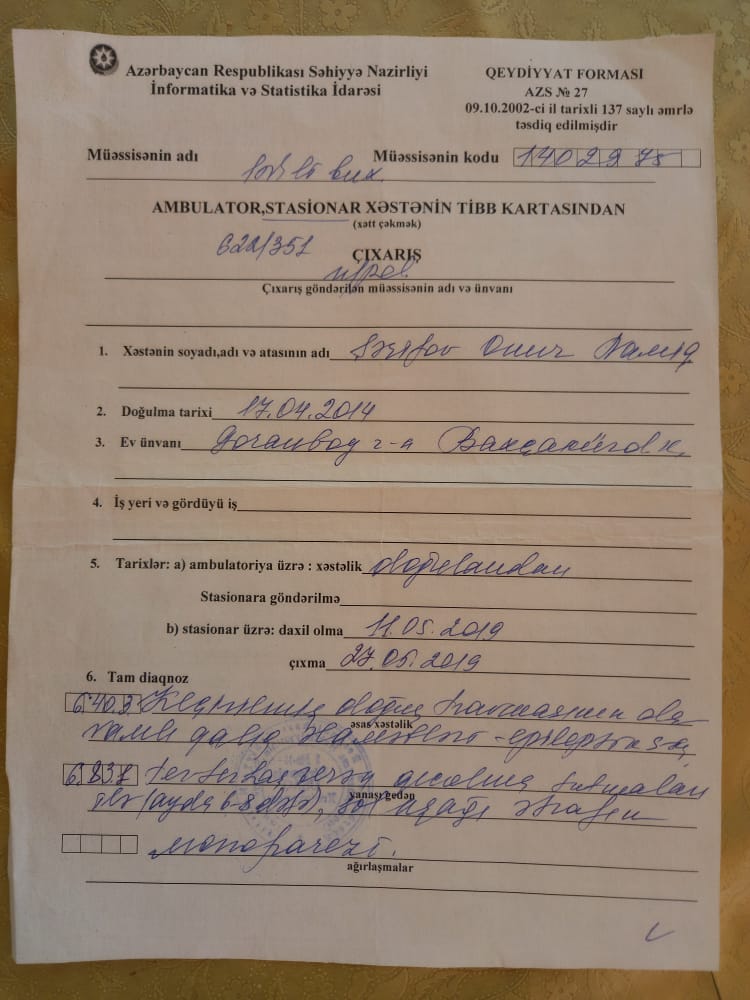 Azərbaycan Respublikası Səhiyyə Nazirliyi
İnformatika və Statistika İdarəsi
QEYDİYYAT FORMASI
AZS № 27
09.10.2002-ci il tarixli 137 saylı əmrlə
təsdiq edilmişdir
Müəssisənin adı
Müəssisənin kodu 1402975
AMBULATOR,STASIONAR XƏSTƏNİN TİBB KARTASINDAN
(xətt çəkmək)
622/351 ÇIXARIŞ
Çıxarış göndərilən müəssisənin adı və ünvanı
1. Xəstənin soyadı,adı və atasının adı Onur
2. Doğulma tarixi 17.04.2014
3. Ev ünvanı Goranboy r-n
4. İş yeri və gördüyü iş
5. Tarixlər: a) ambulatoriya üzrə : xəstəlik doğulandan
Stasionara göndərilmə
b) stasionar üzrə: daxil olma 11.05.2019
çıxma 27.05.2019
6. Tam diaqnoz
G.40.3. Keçirilmiş doğuş travmasının
əsas xəstəlik
qalıq əlamətləri -
G.831 qıcolma tutmaları
yanaşı gedən
(ayda 6-8 dəfə), sol aşağı ətrafın
monoparezi.
ağırlaşmalar